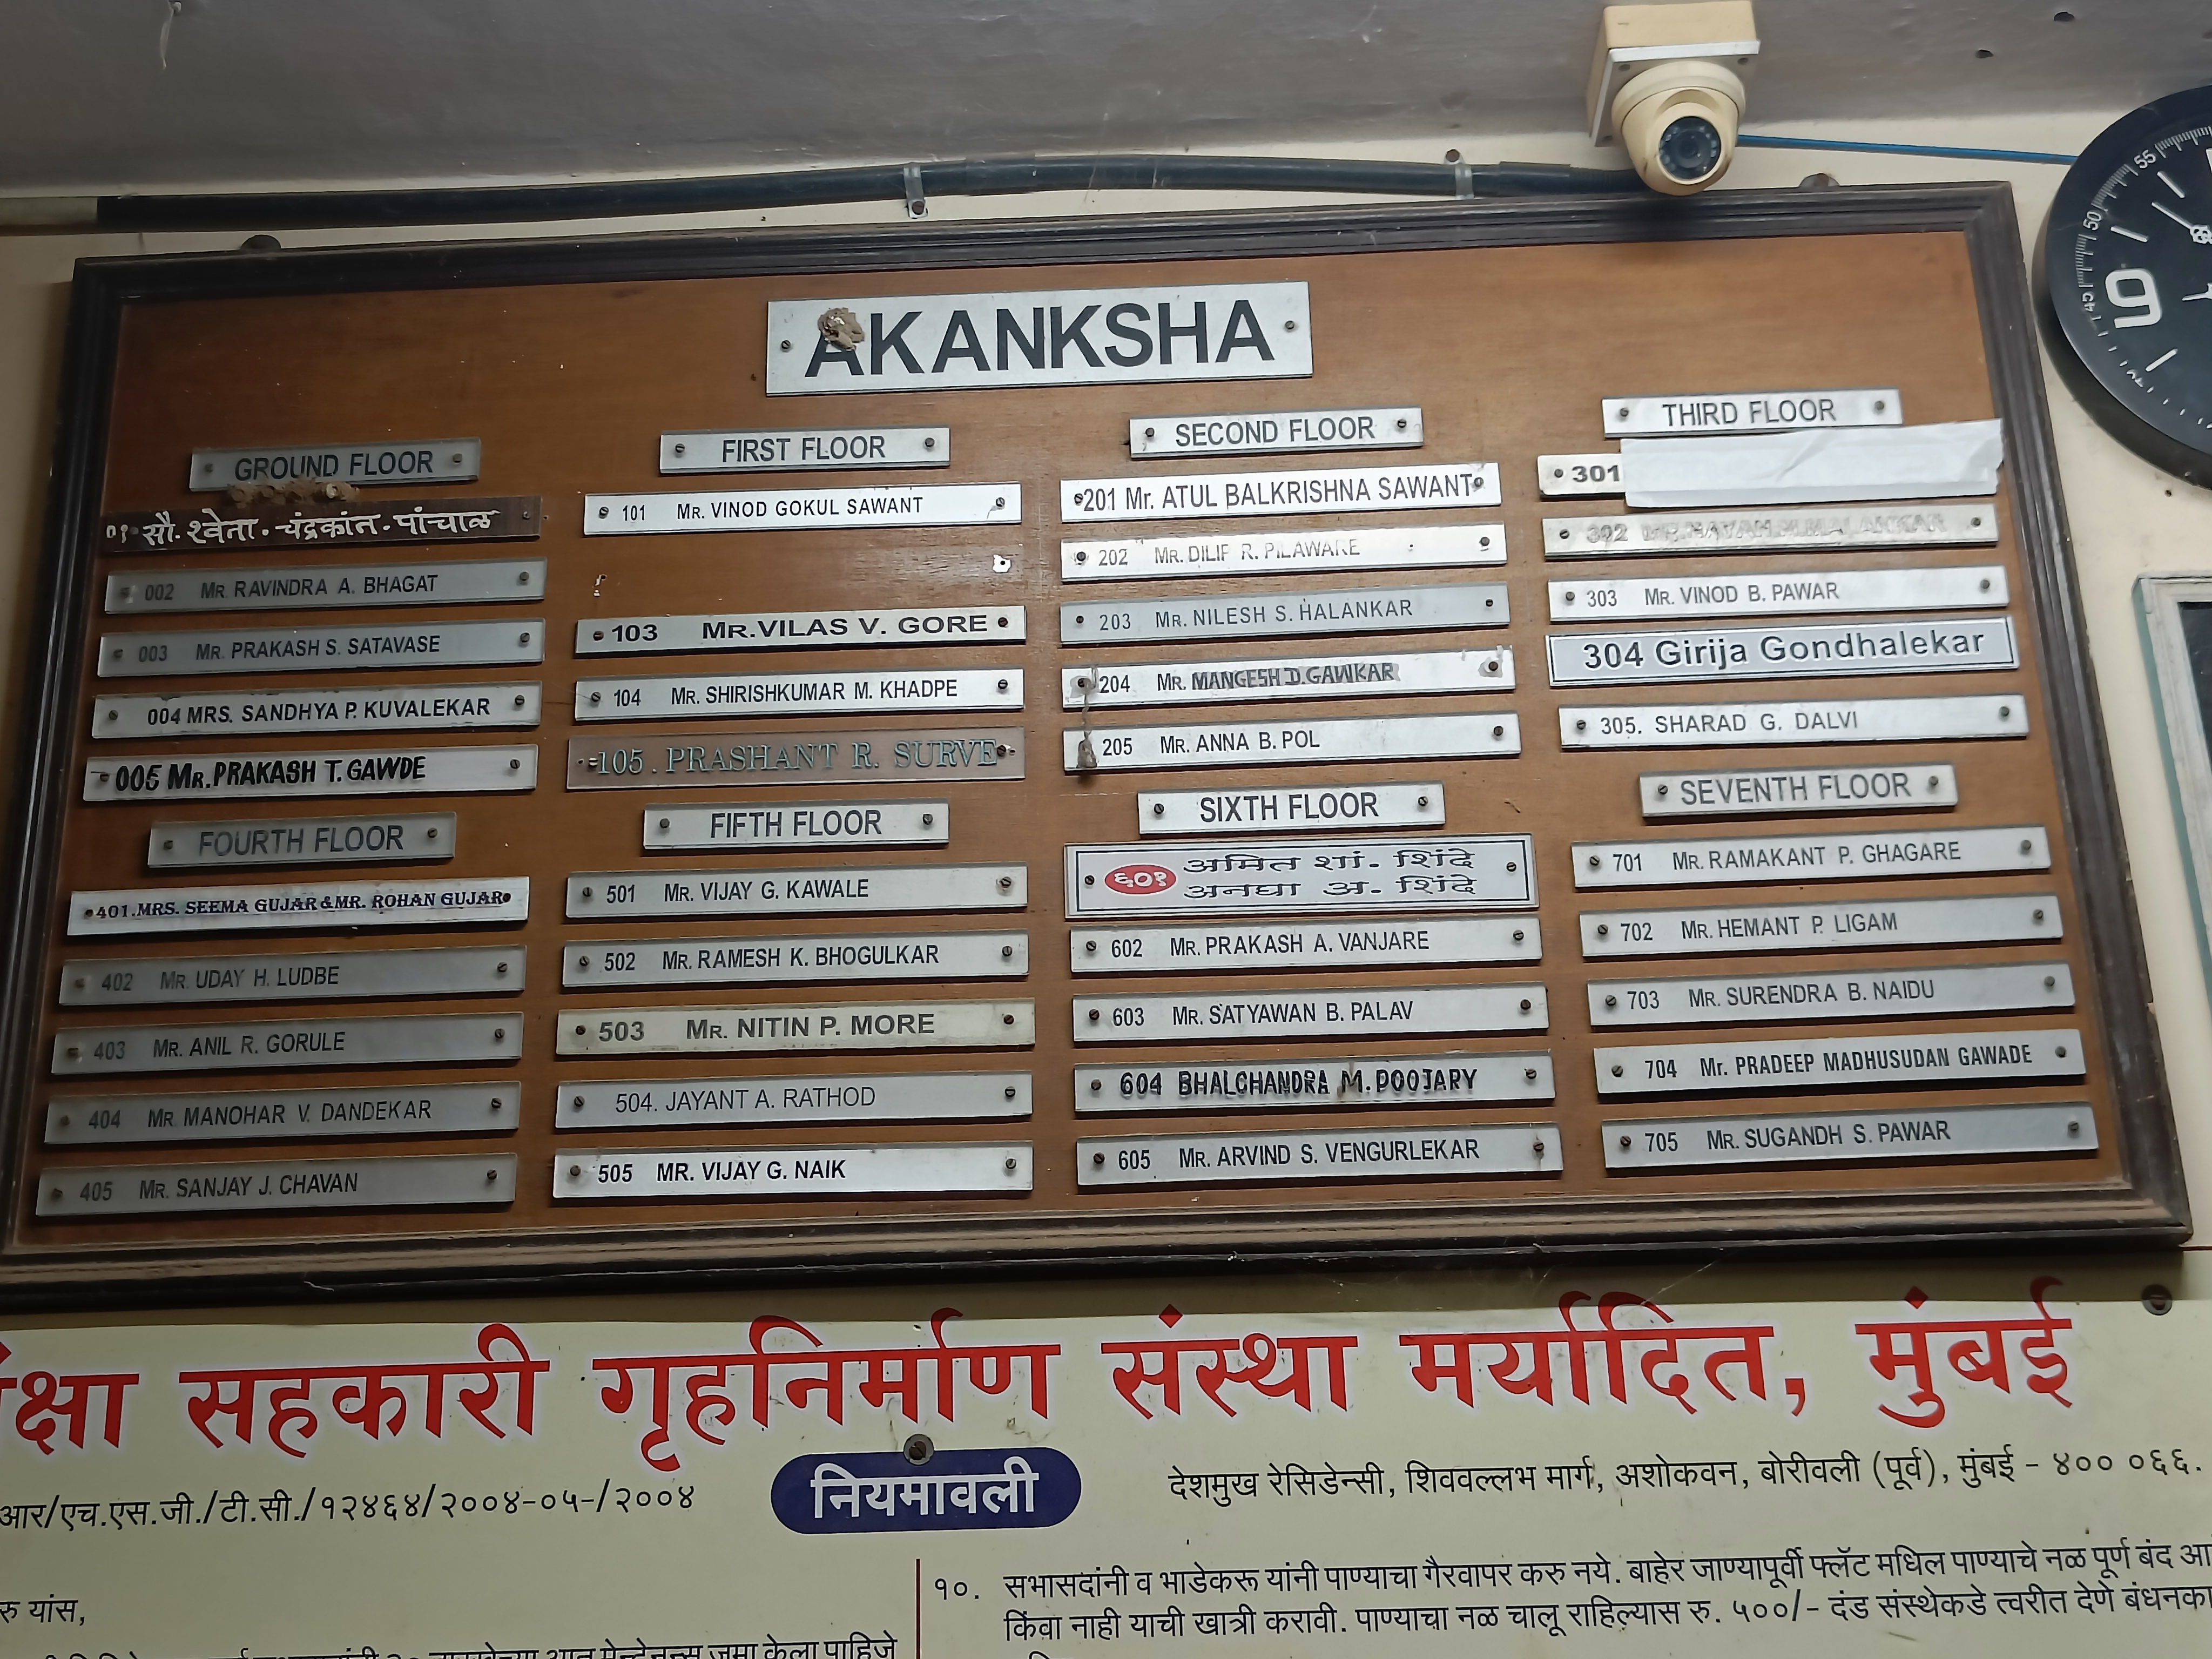 AKANKSHA
GROUND FLOOR
०१ सौ. श्वेता. चंद्रकांत. पांचाळ
002 MR. RAVINDRA A. BHAGAT
003 MR. PRAKASH S. SATAVASE
004 MRS. SANDHYA P. KUVALEKAR
005 MR. PRAKASH T. GAWDE
FIRST FLOOR
101 MR. VINOD GOKUL SAWANT
103 MR. VILAS V. GORE
104 MR. SHIRISHKUMAR M. KHADPE
105. PRASHANT R. SURVE
SECOND FLOOR
201 Mr. ATUL BALKRISHNA SAWANT
202 MR. DILIP R. PILAWARE
203 MR. NILESH S. HALANKAR
204 MR. MANGESH D. GAWKAR
205 MR. ANNA B. POL
THIRD FLOOR
301
302
303 MR. VINOD B. PAWAR
304 Girija Gondhalekar
305. SHARAD G. DALVI
FOURTH FLOOR
401. MRS. SEEMA GUJAR & MR. ROHAN GUJAR
402 MR. UDAY H. LUDBE
403 MR. ANIL R. GORULE
404 MR. MANOHAR V. DANDEKAR
405 MR. SANJAY J. CHAVAN
FIFTH FLOOR
501 MR. VIJAY G. KAWALE
502 MR. RAMESH K. BHOGULKAR
503 MR. NITIN P. MORE
504. JAYANT A. RATHOD
505 MR. VIJAY G. NAIK
SIXTH FLOOR
६०१ अमित शां. शिंदे
अनघा अ. शिंदे
602 MR. PRAKASH A. VANJARE
603 MR. SATYAWAN B. PALAV
604 BHALCHANDRA M. POOJARY
605 MR. ARVIND S. VENGURLEKAR
SEVENTH FLOOR
701 MR. RAMAKANT P. GHAGARE
702 MR. HEMANT P. LIGAM
703 MR. SURENDRA B. NAIDU
704 Mr. PRADEEP MADHUSUDAN GAWADE
705 MR. SUGANDH S. PAWAR
55
50
45
9
क्षा सहकारी गृहनिर्माण संस्था मर्यादित, मुंबई
आर/एच.एस.जी./टी.सी./१२४६४/२००४-०५-/२००४
नियमावली
देशमुख रेसिडेन्सी, शिववल्लभ मार्ग, अशोकवन, बोरीवली (पूर्व), मुंबई - ४०० ०६६.
रु यांस,
१०. सभासदांनी व भाडेकरू यांनी पाण्याचा गैरवापर करु नये. बाहेर जाण्यापूर्वी फ्लॅट मधिल पाण्याचे नळ पूर्ण बंद आ
किंवा नाही याची खात्री करावी. पाण्याचा नळ चालू राहिल्यास रु. ५००/- दंड संस्थेकडे त्वरीत देणे बंधनका